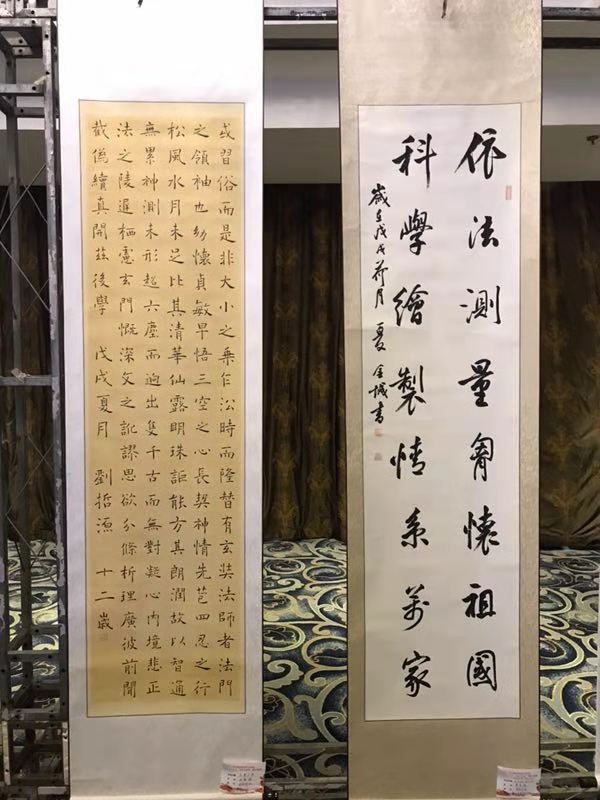 依法測量胷懷祖國
科學繪製情系萬家
歲在戊戌荷月夏金城書
或習俗而是非大小之乘乍沿時而隆替有玄奘法師者法門
之領袖也幼懷貞敏早悟三空之心長契神情先苞四忍之行
松風水月未足比其清華仙露明珠詎能方其朗潤故以智通
無累神測未形超六塵而逈出隻千古而無對凝心內境悲正
法之陵遲栖慮玄門慨深文之訛謬思欲分條析理廣彼前聞
截僞續真開茲後學 戊戌夏月 劉哲源 十二歲